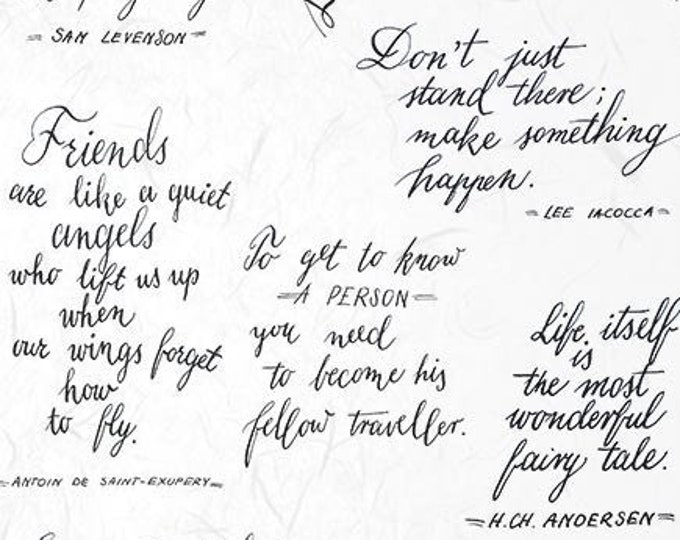 = SAN LEVENSON =
Don't just
stand there;
make something
happen.
= LEE IACOCCA =
Friends
are like a quiet
angels
who lift us up
when
our wings forget
how
to fly.
= ANTOIN DE SAINT-EXUPERY =
To get to know
= A PERSON =
you need
to become his
fellow traveller.
Life itself
is
the most
wonderful
fairy tale.
= H.CH. ANDERSEN =